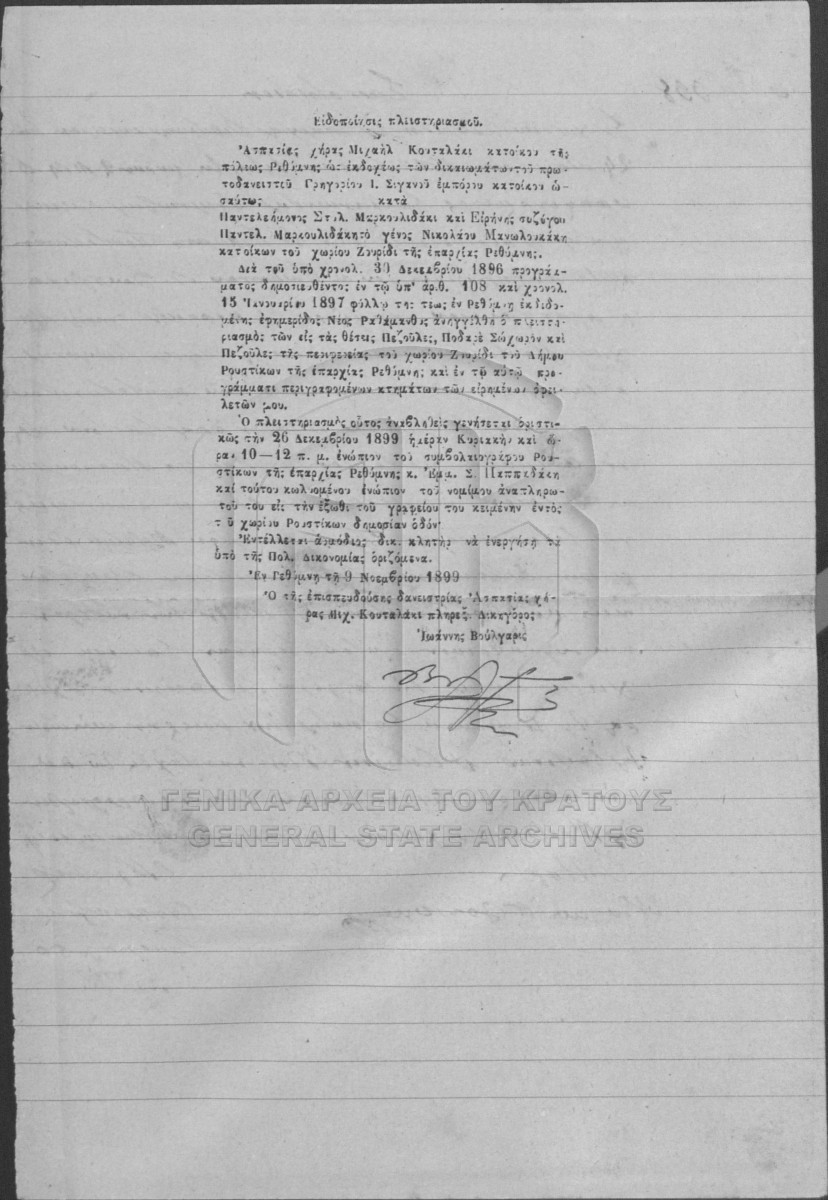 Εἰδοποίησις πλειστηριασμοῦ.
Ἀσπασίας χήρας Μιχαὴλ Κουταλάκι κατοίκου τῆς
πόλεως Ρεθύμνης ὡς ἐκδοχέως τῶν δικαιωμάτων τοῦ πρω-
τοδανειστοῦ Γρηγορίου Ι. Σιγανοῦ ἐμπόρου κατοίκου ὡ-
σαύτως κατὰ
Παντελεήμονος Στυλ. Μαρκουλιδάκι καὶ Εἰρήνης συζύγου
Παντελ. Μαρκουλιδάκη τὸ γένος Νικολάου Μανωλουκάκη
κατοίκων τοῦ χωρίου Ζουρίδι τῆς ἐπαρχίας Ρεθύμνης.
Διὰ τοῦ ὑπὸ χρονολ. 30 Δεκεμβρίου 1896 προγράμ-
ματος δημοσιευθέντος ἐν τῷ ὑπ' ἀριθ. 108 καὶ χρονολ.
15 Ἰανουαρίου 1897 φύλλῳ της τεως ἐν Ρεθύμνῃ ἐκδιδο-
μένης ἐφημερίδος Νέος Ραδάμανθυς ἀνηγγέλθη ὁ πλειστη-
ριασμὸς τῶν εἰς τὰς θέσεις Πεζοῦλες, Ποδαρὲ Σώχωρον καὶ
Πεζοῦλες τῆς περιφερείας τοῦ χωρίου Ζουρίδι τοῦ Δήμου
Ρουστίκων τῆς ἐπαρχίας Ρεθύμνης καὶ ἐν τῷ αὐτῷ προ-
γράμματι περιγραφομένων κτημάτων τῶν εἰρημένων ὀφει-
λετῶν μου.
Ὁ πλειστηριασμὸς οὗτος ἀναβληθεὶς γενήσεται ὁριστι-
κῶς τὴν 26 Δεκεμβρίου 1899 ἡμέραν Κυριακὴν καὶ ὥ-
ραν 10—12 π. μ. ἐνώπιον τοῦ συμβολαιογράφου Ρου-
στίκων τῆς ἐπαρχίας Ρεθύμνης κ. Ἐμμ. Σ. Παππαδάκη
καὶ τούτου κωλυομένου ἐνώπιον τοῦ νομίμου ἀναπληρω-
τοῦ του εἰς τὴν ἔξωθι τοῦ γραφείου του κειμένην ἐντὸς
τοῦ χωρίου Ρουστίκων δημοσίαν ὁδόν·
Ἐντέλλεται ἁρμόδιος δικ. κλητὴρ νὰ ἐνεργήσῃ τὰ
ὑπὸ τῆς Πολ. Δικονομίας ὁριζόμενα.
Ἐν Ρεθύμνῃ τῇ 9 Νοεμβρίου 1899
Ὁ τῆς ἐπισπευδούσης δανειστρίας Ἀσπασίας χή-
ρας Μιχ. Κουταλάκι πληρεξ. Δικηγόρος
Ἰωάννης Βούλγαρις
ΓΕΝΙΚΑ ΑΡΧΕΙΑ ΤΟΥ ΚΡΑΤΟΥΣ
GENERAL STATE ARCHIVES